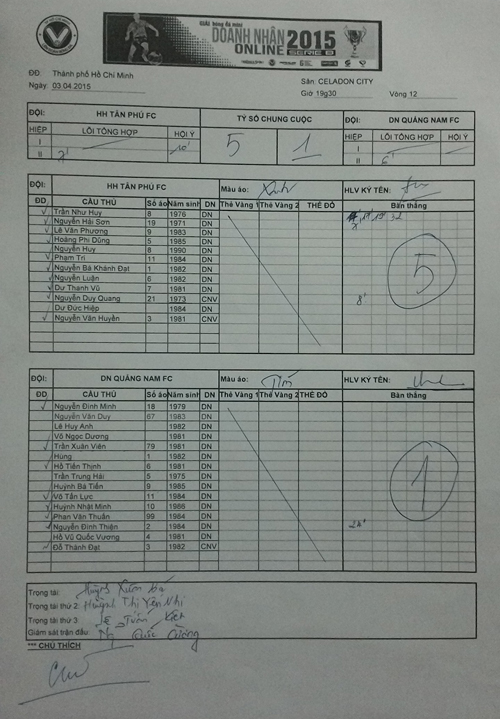 GIẢI bóng đá mini
DOANH NHÂN
ONLINE 2015
SERIE B
ĐĐ: Thành phố Hồ Chí Minh
Sân: CELADON CITY
Ngày 03.04.2015
Giờ 19g30 Vòng 12
ĐỘI: HH TÂN PHÚ FC TỶ SỐ CHUNG CUỘC ĐỘI: DN QUẢNG NAM FC
HIỆP LỖI TỔNG HỢP HỘI Ý 5 1 HIỆP LỖI TỔNG HỢP HỘI Ý
I I
II 7' 10' II 6'
ĐỘI: HH TÂN PHÚ FC Màu áo: Xanh HLV KÝ TÊN:
ĐD CẦU THỦ Số áo Năm sinh DN Thẻ Vàng 1 Thẻ Vàng 2 THẺ ĐỎ Bàn thắng
Trần Như Huy 8 1976 DN
Nguyễn Hải Sơn 19 1971 DN
Lê Văn Phương 9 1983 DN
Hoàng Phi Dũng 5 1985 DN
Nguyễn Huy 8 1990 DN
Phạm Trí 11 1984 DN
Nguyễn Bá Khánh Đạt 1 1982 DN
Nguyễn Luận 6 1982 DN
Dư Thanh Vũ 7 1981 DN
Nguyễn Duy Quang 21 1973 CNV 8'
Dư Đức Hiệp 1984 DN
Nguyễn Văn Huyền 3 1981 CNV
5
ĐỘI: DN QUẢNG NAM FC Màu áo: Tím HLV KÝ TÊN:
ĐD CẦU THỦ Số áo Năm sinh DN Thẻ Vàng 1 Thẻ Vàng 2 THẺ ĐỎ Bàn thắng
Nguyễn Đình Minh 18 1979 DN
Nguyễn Văn Duy 67 1983 DN
Lê Huy Anh 1982 DN
Võ Ngọc Dương 1981 DN
Trần Xuân Viên 79 1981 DN
Hùng 1 1982 DN
Hồ Tiến Thịnh 6 1981 DN
Trần Trung Hải 5 1975 DN
Huỳnh Bá Tiến 9 1985 DN
Võ Tấn Lực 11 1984 DN
Huỳnh Nhật Minh 10 1986 DN
Phan Văn Thuấn 99 1984 DN
Nguyễn Đình Thiện 2 1984 DN 24'
Hồ Vũ Quốc Vương 4 1981 DN
Đỗ Thành Đạt 3 1982 CNV
1
Trọng tài: Huỳnh Xuân
Trọng tài thứ 2: Huỳnh Thị Yến Nhi
Trọng tài thứ 3: Lê Tuấn Kiệt
Giám sát trận đấu: Ng Quốc Cường
*** CHÚ THÍCH